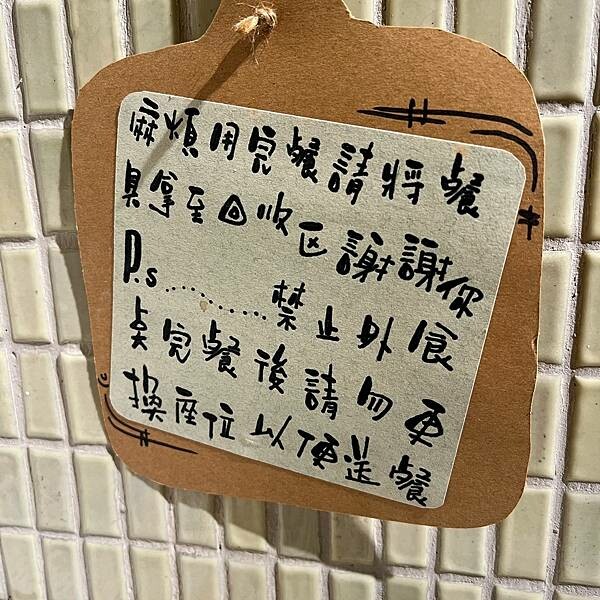 麻煩用完餐請將餐
具拿至回收区謝謝你
P.s..........禁止外食
点完餐後請勿更
換座位以便送餐